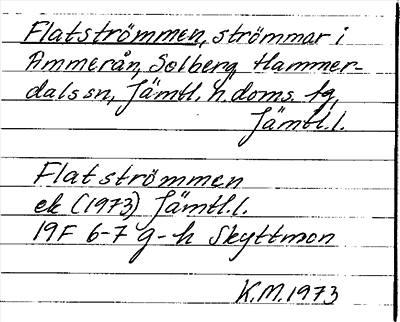 Flatströmmen, strömmar i
Ammerån, Solberg Hammer-
dals sn, Jämtl. n. doms. tg,
Jämtl.l.
Flatströmmen
ek (1973) Jämtl.l.
19F 6-7 g-h Skyttmon
K.M. 1973